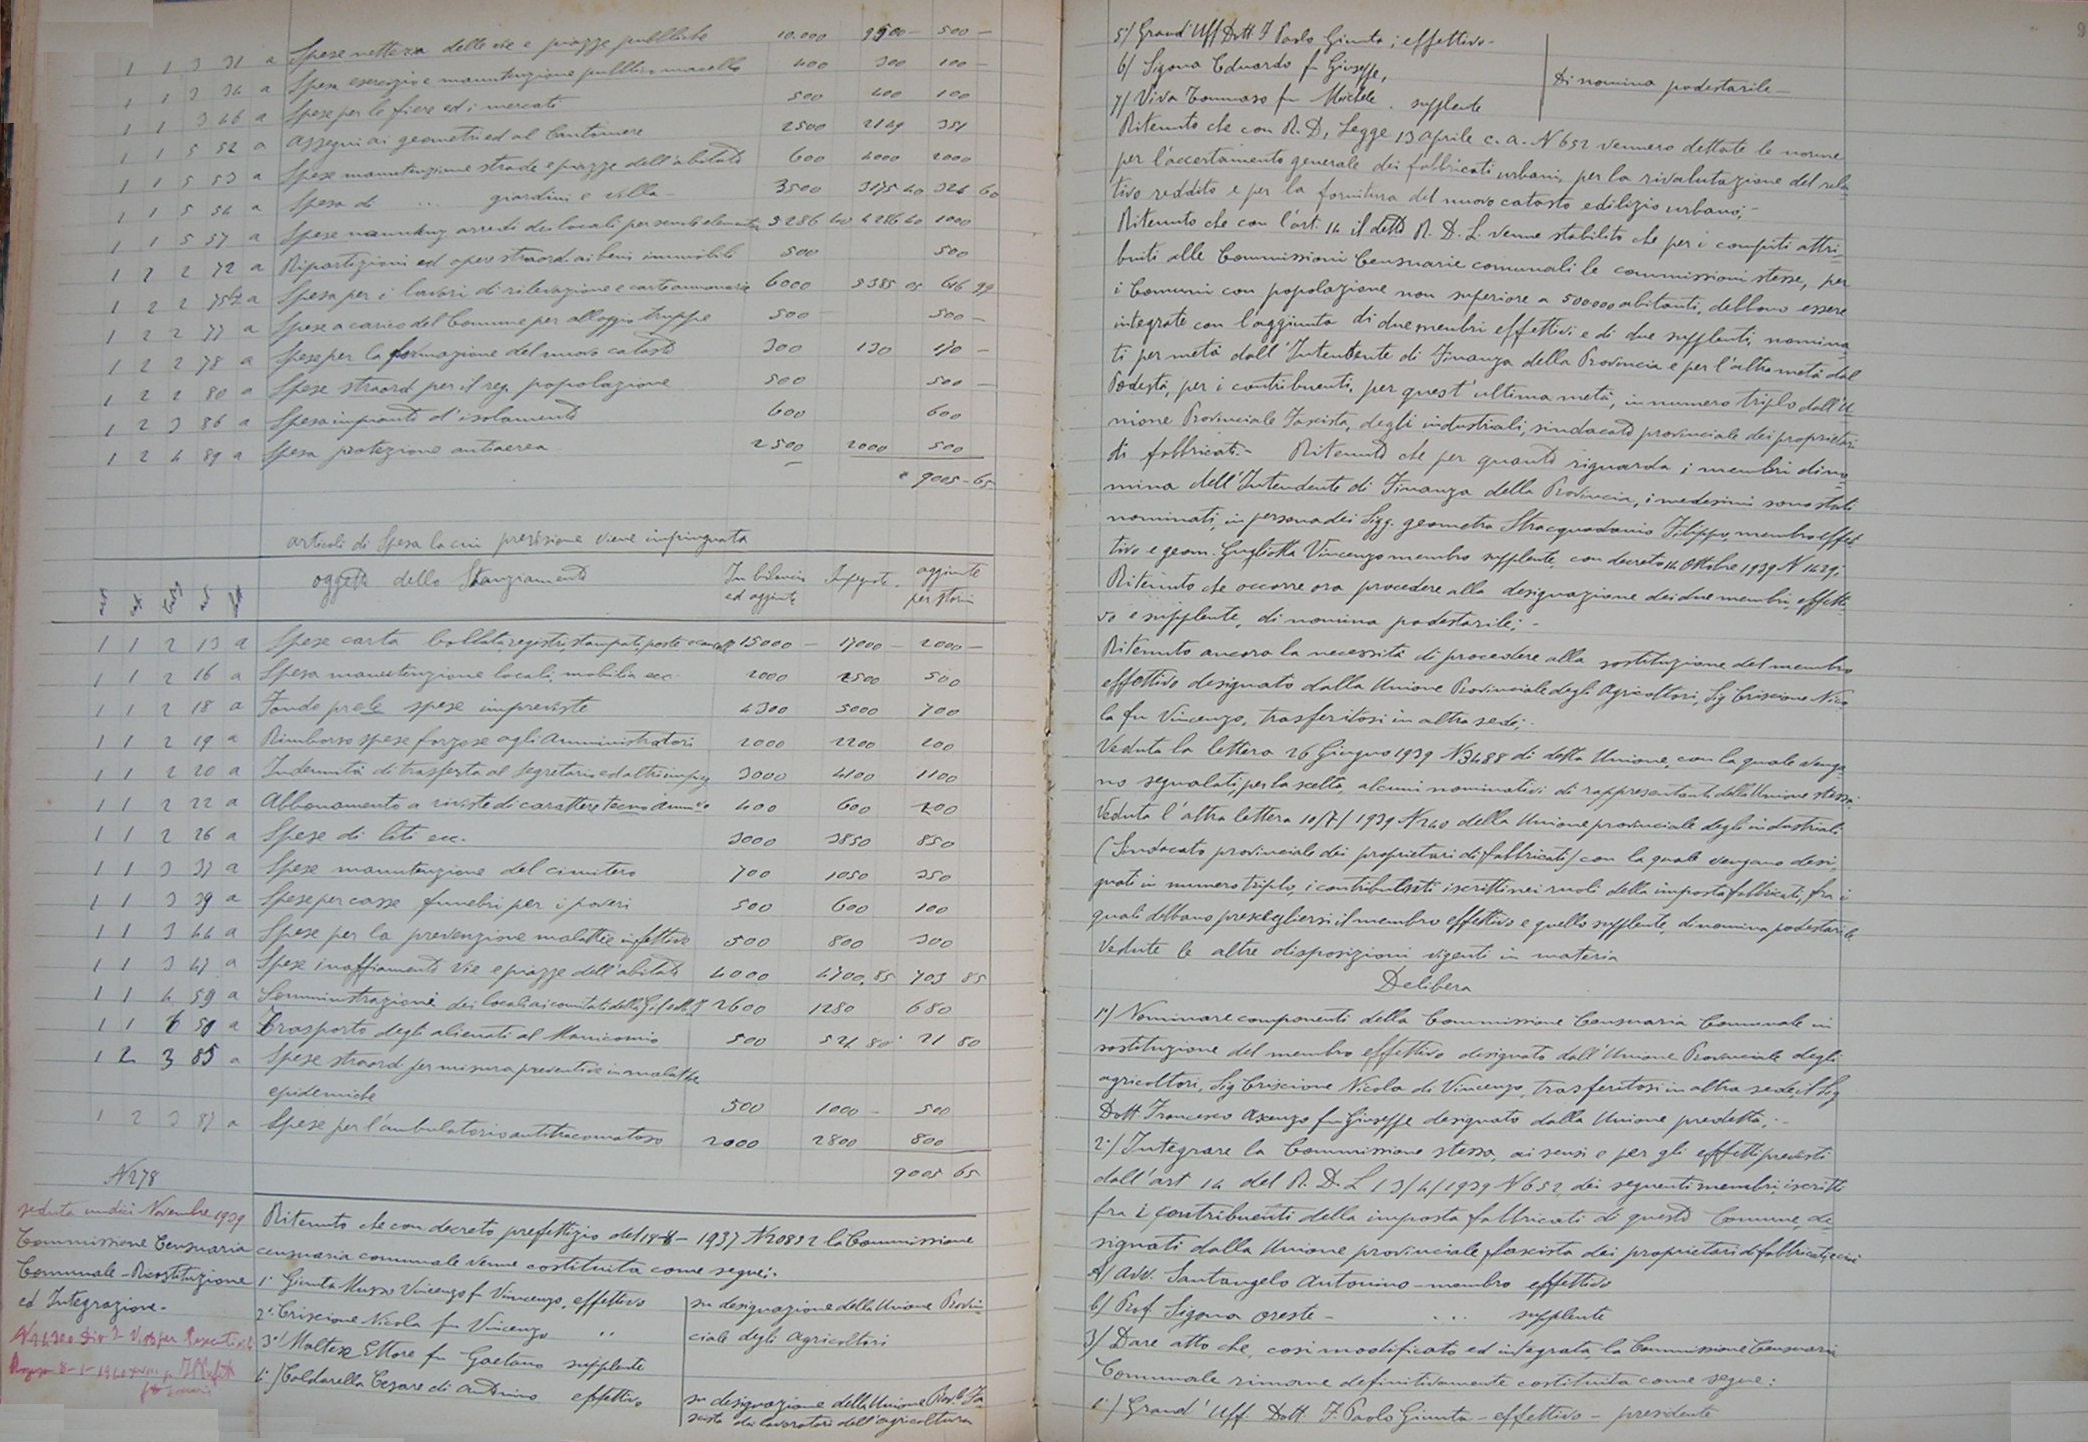 1 1 3 31 a Spese nettezza delle vie e piazze pubbliche 10.000 9500 - 500 -
1 1 3 34 a Spesa esercizio e manutenzione pubblico macello 400 300 100 -
1 1 3 46 a Spese per le fiere ed i mercati 500 400 100
1 1 5 52 a assegni ai geometri ed al Cantoniere 2500 2149 351
1 1 5 53 a Spese manutenzione strade e piazze dell'abitato 600 4000 2000
1 1 5 54 a Spesa di ... giardini e villa - 3500 3175 40 324 60
1 1 5 57 a Spese manutenz. arredi dei locali per scuole elementari 5286 40 4286 40 1000
1 2 2 72 a Ripartizioni ed opere straord. ai beni immobili 500 500
1 2 2 75 a Spesa per i lavori di rilevazione e carte annonarie 6000 5385 05
1 2 2 77 a Spese a carico del Comune per alloggio truppe 500 - 500 -
1 2 2 78 a Spese per la formazione del nuovo catasto 300 130 170 -
1 2 2 80 a Spese straord per il reg. popolazione 500 500 -
1 2 3 86 a Spesa impianto d'isolamento 600 600
1 2 4 89 a Spesa protezione antiaerea 2500 2000 500
9005 - 65
articoli di Spesa la cui previsione viene impinguata
oggetto dello Stanziamento In bilancio aggiunte
ed aggiunte per storni
1 1 2 13 a Spese carta bollata registri, stampati, poste 15000 - 17000 - 2000 -
1 1 2 16 a Spesa manutenzione locali, mobilia ecc. 2000 2500 500
1 1 2 18 a Fondo per le spese impreviste 4300 5000 700
1 1 2 19 a Rimborso spese forzose agli Amministratori 2000 2200 200
1 1 2 20 a Indennità di trasferta al Segretario ed altri impieg 3000 4100 1100
1 1 2 22 a Abbonamento a riviste di carattere tecno ammvo 400 600 200
1 1 2 26 a Spese di liti ecc. 3000 3850 850
1 1 3 37 a Spese manutenzione del cimitero 700 1050 350
1 1 3 39 a Spese per casse funebri per i poveri 500 600 100
1 1 3 44 a Spese per la prevenzione malattie infettive 500 800 300
1 1 3 47 a Spese inaffiamento vie e piazze dell'abitato 4000 4703,85 703 85
1 1 4 59 a Somministrazione dei locali ai comitati della 2600 1280 680
1 1 6 50 a Trasporto degli alienati al Manicomio 500 521 80 21 80
1 2 3 85 a Spese straord per misura preventive in malattie
epidemiche 500 1000 - 500
1 2 3 87 a Spese per l'ambulatorio antitracomatoso 2000 2800 800
9005 65
N 278
seduta undici Novembre 1939
Commissione Censuaria
Comunale - Ricostituzione
ed Integrazione -
Ritenuto che con decreto prefettizio del 14-8- 1937 N 20852 la Commissione
censuaria comunale venne costituita come segue:
1° Giunta Musso Vincenzo fu Vincenzo, effettivo su designazione della Unione Provin
2° Criscione Nicola fu Vincenzo " ciale degli Agricoltori
3°/ Maltese Ettore fu Gaetano supplente
4°/ Caldarella Cesare di Antonino effettivo su designazione della Unione Prov. Fa
scista dei lavoratori dell'agricoltura
5°/ Grand'Uff Dott. F. Paolo Giunta; effettivo -
6/ Sigona Eduardo fu Giuseppe, Di nomina podestarile -
7/ Viva Tommaso fu Michele. supplente
Ritenuto che con R. D. Legge 13 aprile c. a. N 652 vennero dettate le norme
per l'accertamento generale dei fabbricati urbani, per la rivalutazione del rela
tivo reddito e per la formitura del nuovo catasto edilizio urbano; -
Ritenuto che con l'art. 14 il detto R. D. L. venne stabilito che per i compiti attri
buiti alle Commissioni Censuarie comunali le commissioni stesse, per
i Comuni con popolazione non superiore a 500000 abitanti, debbono essere
integrate con l'aggiunta di due membri effettivi e di due supplenti, nomina
ti per metà dall'Intendente di Finanza della Provincia e per l'altra metà dal
Podestà, per i contribuenti, per quest'ultima metà, in numero triplo dall'U
nione Provinciale Fascista, degli industriali, sindacato provinciale dei proprietari
di fabbricati. - Ritenuto che per quanto riguarda i membri di no
mina dell'Intendente di Finanza della Provincia, i medesimi sono stati
nominati, in persona dei Sigg. geometra Stracquadanio Filippo, membro effet
tivo e geom. Gugliotta Vincenzo membro supplente, con decreto 14 Ottobre 1939 N 1429;
Ritenuto che occorre ora procedere alla designazione dei due membri, effetti
vo e supplente, di nomina podestarile; -
Ritenuto ancora la necessità di procedere alla sostituzione del membro
effettivo designato dalla Unione Provinciale degli Agricoltori, Sig Criscione Nico
la fu Vincenzo, trasferitosi in altra sede;
Veduta la lettera 26 Giugno 1939 N 3488 di detta Unione, con la quale vengo
no segnalati, per la scelta, alcuni nominativi di rappresentanti dell'Unione stessa;
Veduta l'altra lettera 10/7/1939 N 240 della Unione provinciale degli industriali
(Sindacato provinciale dei proprietari di fabbricati) con la quale vengano desi
gnati in numero triplo, i contribuenti iscritti nei ruoli della imposta fabbricati, fra i
quali debbano prescegliersi il membro effettivo e quello supplente, di nomina podestarile
Vedute le altre disposizioni vigenti in materia
Delibera
1°/ Nominare componenti della Commissione Censuaria Comunale in
sostituzione del membro effettivo designato dall'Unione Provinciale degli
agricoltori, Sig Criscione Nicola di Vincenzo, trasferitosi in altra sede, il Sig
Dott Francesco Ascenzo fu Giuseppe designato dalla Unione predetta; -
2°/ Integrare la Commissione stessa, ai sensi e per gli effetti previsti
dall'art 14 del R. D. L 13/4/1939 N 652 dei seguenti membri, iscritti
fra i contribuenti della imposta fabbricati di questo Comune, de
signati dalla Unione provinciale fascista dei proprietari di fabbricati,
a/ Avv. Santangelo Antonino - membro effettivo
b/ Prof. Sigona Oreste - ... supplente
3/ Dare atto che, così modificata ed integrata, la Commissione Censuaria
Comunale rimane definitivamente costituita come segue:
1°/ Grand'Uff. Dott. F. Paolo Giunta - effettivo - presidente